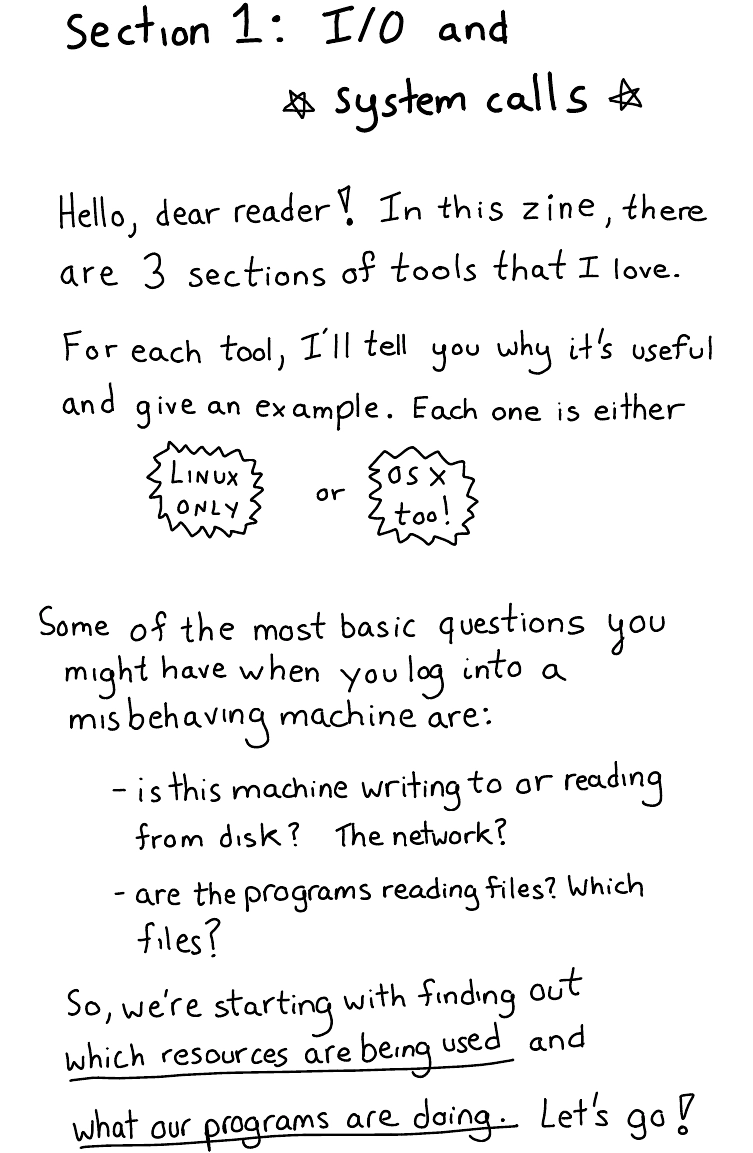 Section 1: I/O and
☆ system calls ☆
Hello, dear reader! In this zine, there
are 3 sections of tools that I love.
For each tool, I'll tell you why it's useful
and give an example. Each one is either
LINUX
ONLY
or
OS X
too!
Some of the most basic questions you
might have when you log into a
misbehaving machine are:
- is this machine writing to or reading
from disk? The network?
- are the programs reading files? Which
files?
So, we're starting with finding out
which resources are being used and
what our programs are doing. Let's go!